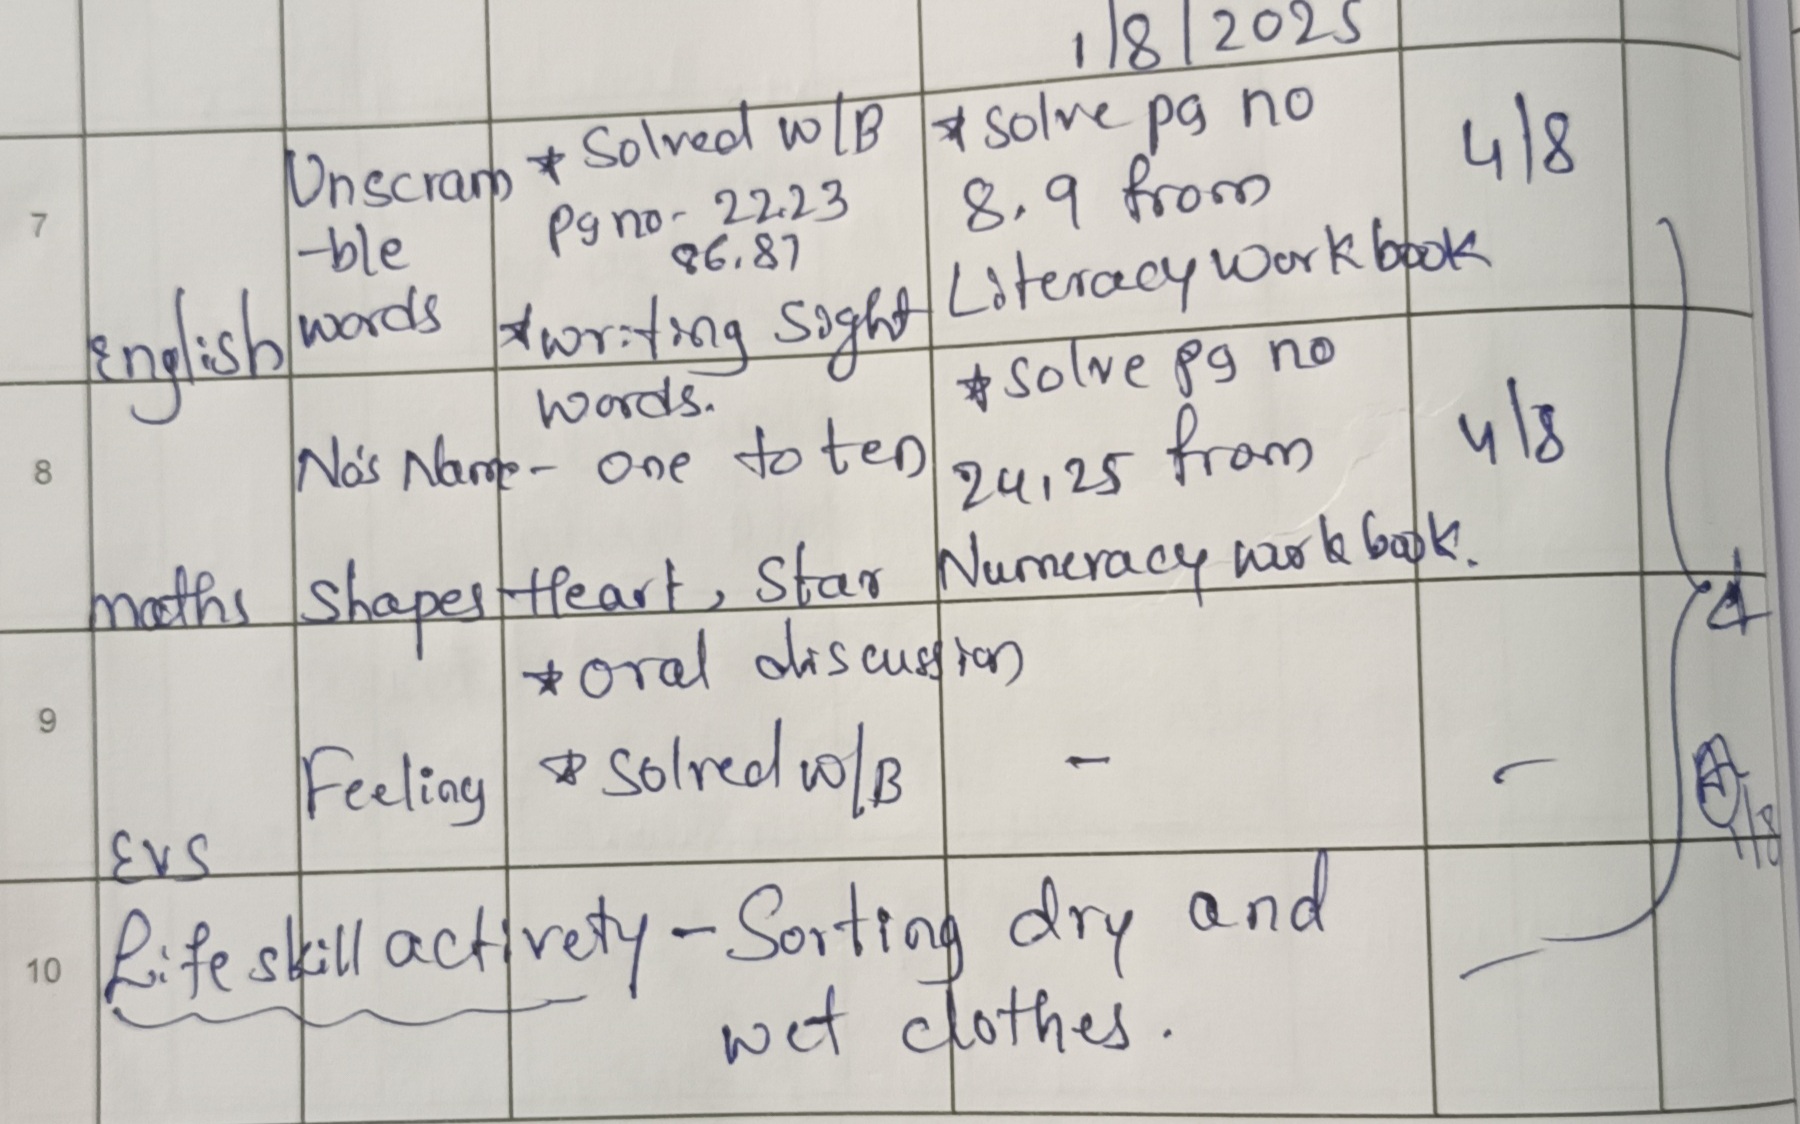 1/8/2025
7
English
Unscram
-ble
words
* Solved w/B
Pg no- 22.23
86.87
* writing Sight
words.
* Solve pg no
8.9 from
Literacy work book
4/8
8
maths
No's Name - one to ten
Shapes - Heart, Star
* Solve pg no
24,25 from
Numeracy work book.
4/8
9
EVS
Feeling
* oral discussion
* Solved w/B
-
-
10
Life skill activety - Sorting dry and
wet clothes.